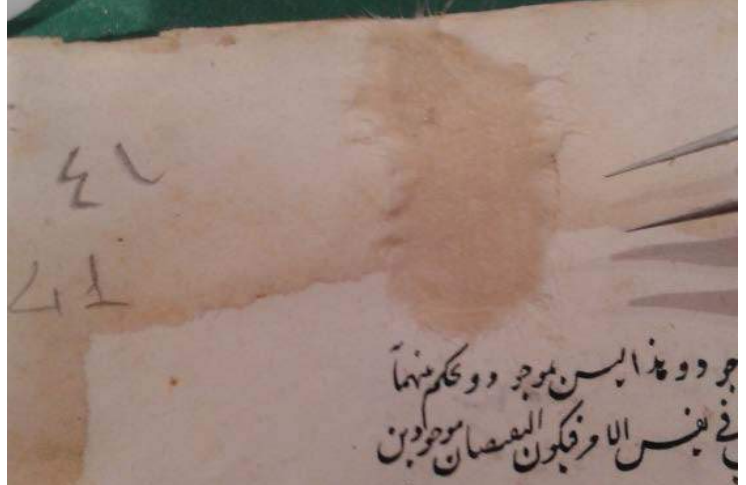 ٤١
41
جو دو هذا ليس بموجو دو يحكم منهما
في نفس الامر فيكون النقيضان موجودين